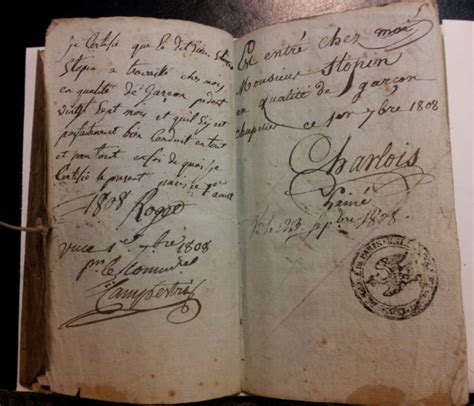 je Certifie que le dit Sieur
Stopin a travaillé chez moi
en qualité de Garcon pendent
vint Sept mois et quil Sy est
parfaitement bon Conduit en tout
et par tout enfoi de quoi je
Certifie le present
1808
vue 1er 7bre 1808
pr le Commirel
Est entré chez moi
Monsieur Stopin
en qualité de garçon
chapelier ce 1er 7bre 1808
Charlois
Lainé
1808